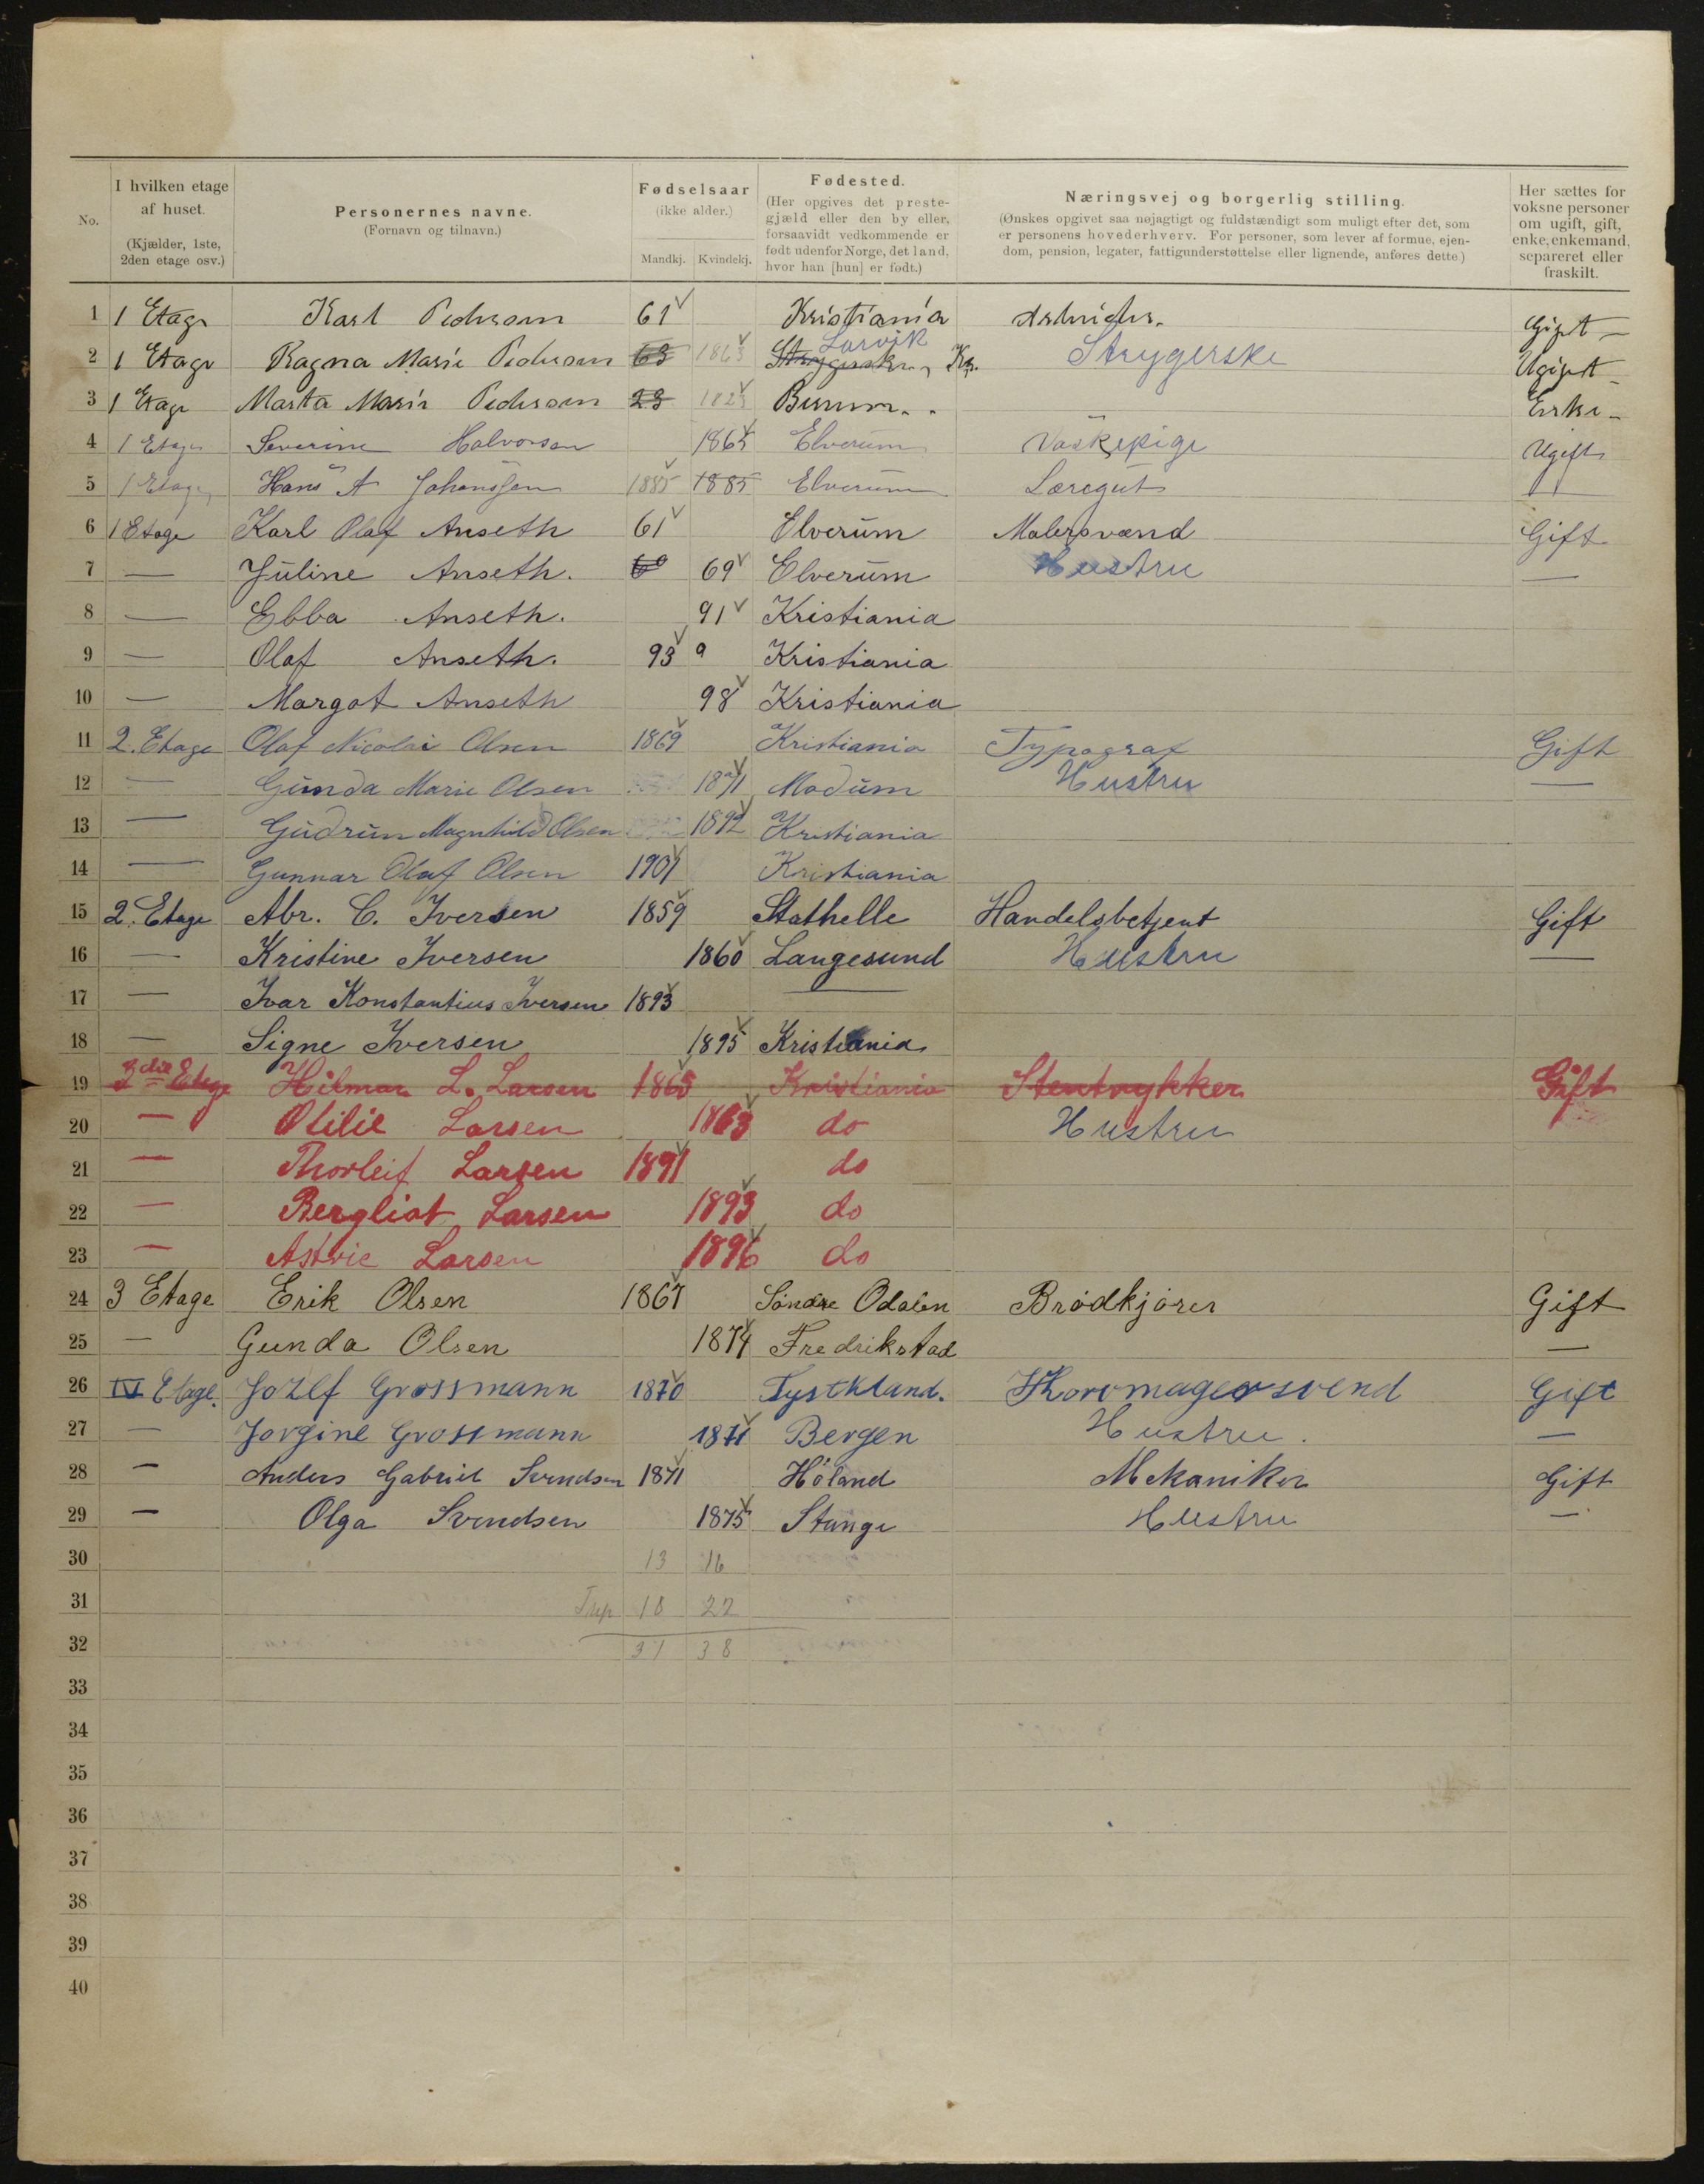 No.
I hvilken etage af huset. (Kjælder, 1ste, 2den etage osv.)
Personernes navne. (Fornavn og tilnavn.)
Fødselsaar (ikke alder.) Mandkj. Kvindekj.
Fødested. (Her opgives det prestegjæld eller den by eller, forsaavidt vedkommende er født udenfor Norge, det land, hvor han [hun] er født.)
Næringsvej og borgerlig stilling. (Ønskes opgivet saa nøjagtigt og fuldstændigt som muligt efter det, som er personens hovederhverv. For personer, som lever af formue, ejendom, pension, legater, fattigunderstøttelse eller lignende, anføres dette)
Her sættes for voksne personer om ugift, gift, enke, enkemand, separeret eller fraskilt.
1 1 Etage Karl Pedersen 61 Kristiania Gift
2 1 Etage Ragna Marie Pedersen 63 1863 Strygerske Larvik Strygerske Ugift
3 1 Etage Marta Marie Pedersen 23 1823 Bærum Enke
4 1 Etage Severine Halvorsen 1865 Elverum Vaskepige Ugift
5 1 Etage Hans A Johanssen 1885 1885 Elverum Læregut
6 1 Etage Karl Olaf Anseth 61 Elverum Malersvænd Gift
7 — Juline Anseth. 69 Elverum Hustru —
8 — Ebba Anseth. 91 Kristiania
9 — Olaf Anseth. 93 Kristiania
10 — Margot Anseth 98 Kristiania
11 2. Etage Olaf Nicolai Olsen 1869 Kristiania Typograf Gift
12 — Gunda Marie Olsen 1871 Modum Hustru —
13 — Gudrun Magnhild Olsen 1892 Kristiania
14 — Gunnar Olaf Olsen 1901 Kristiania
15 2. Etage Abr. C. Iversen 1859 Stathelle Handelsbetjent Gift
16 — Kristine Iversen 1860 Langesund Hustru —
17 — Ivar Konstantius Iversen 1893 —
18 — Signe Iversen 1895 Kristiania
19 3die Etage Hilmar L. Larsen 1865 Kristiania Stentrykker Gift
20 — Otilie Larsen 1863 do Hustru
21 — Thorleif Larsen 1891 do
22 — Bergliot Larsen 1893 do
23 — Astrie Larsen 1896 do
24 3 Etage Erik Olsen 1867 Søndre Odalen Brødkjører Gift
25 — Gunda Olsen 1874 Fredrikstad —
26 IV Etage. Jozef Grossmann 1870 Tystkland. Skoromagersvend Gift
27 — Jorgine Grossmann 1871 Bergen Hustru. —
28 — Anders Gabriel Svendsen 1871 Høland Mekaniker Gift
29 — Olga Svendsen 1875 Stange Hustru —
30 13 16
31 18 22
32 31 38
33
34
35
36
37
38
39
40